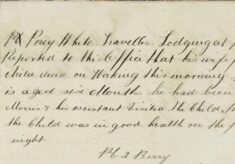 Percy White. Traveller. Lodging at
Reported to the Office that his wife
child dead on Waking this morning
is aged six Months he had been
Morris & his assistant Visited the Child, th
the Child was in good health on the p
night.
Berry